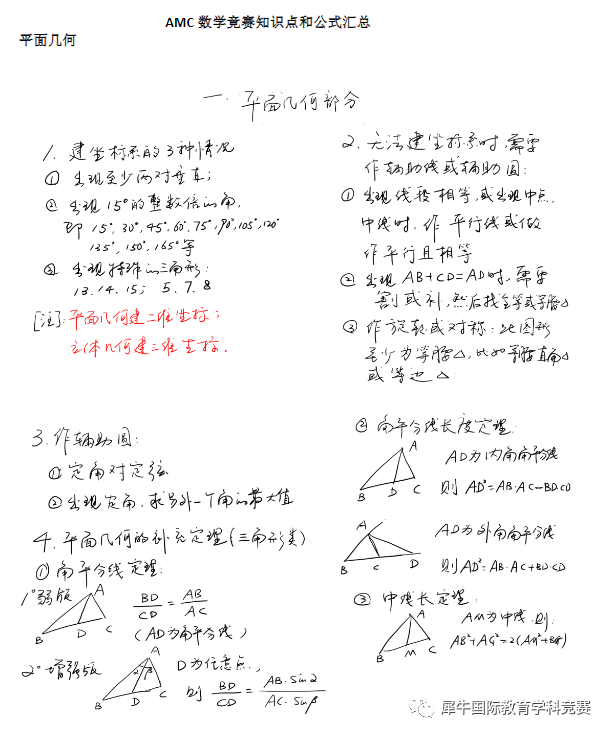 AMC 数学竞赛知识点和公式汇总
平面几何
一. 平面几何部分
1. 建坐标系的3种情况
① 出现至少两对垂直;
② 出现15°的整数倍的角,
即 15°, 30°, 45°, 60°, 75°, 90°, 105°, 120°
135°, 150°, 165° 等
③ 出现特殊的三角形:
13. 14. 15; 5. 7. 8
[注]: 平面几何建二维坐标;
立体几何建三维坐标.
2. 无法建坐标系时, 需要
作辅助线或辅助圆:
① 出现线段相等, 或出现中点,
中线时, 作平行线或做
作平行且相等
② 出现 AB+CD=AD时, 需要
割或补, 然后找全等或等腰△
③ 作旋转或对称: 此图形
至少为等腰△, 比如等腰直角△
或等边△
3. 作辅助圆:
① 定角对定弦
② 出现定角, 求另外一个角的最大值
4. 平面几何的补充定理(三角形类)
① 角平分线定理:
1° 弱版
A
B D C
BD/CD = AB/AC
(AD为角平分线)
2° 增强版
A
α β
B D C
D为任意点,
则 BD/CD = AB·Sinα/AC·Sinβ
② 角平分线长度定理:
A
B D C
AD为内角角平分线
则 AD²=AB·AC-BD·CD
A
B C D
AD为外角角平分线
则AD²=-AB·AC+BD·CD
③ 中线长定理:
A
B M C
AM为中线, 则:
AB²+AC²=2(AM²+BM²)
犀牛国际教育学科竞赛